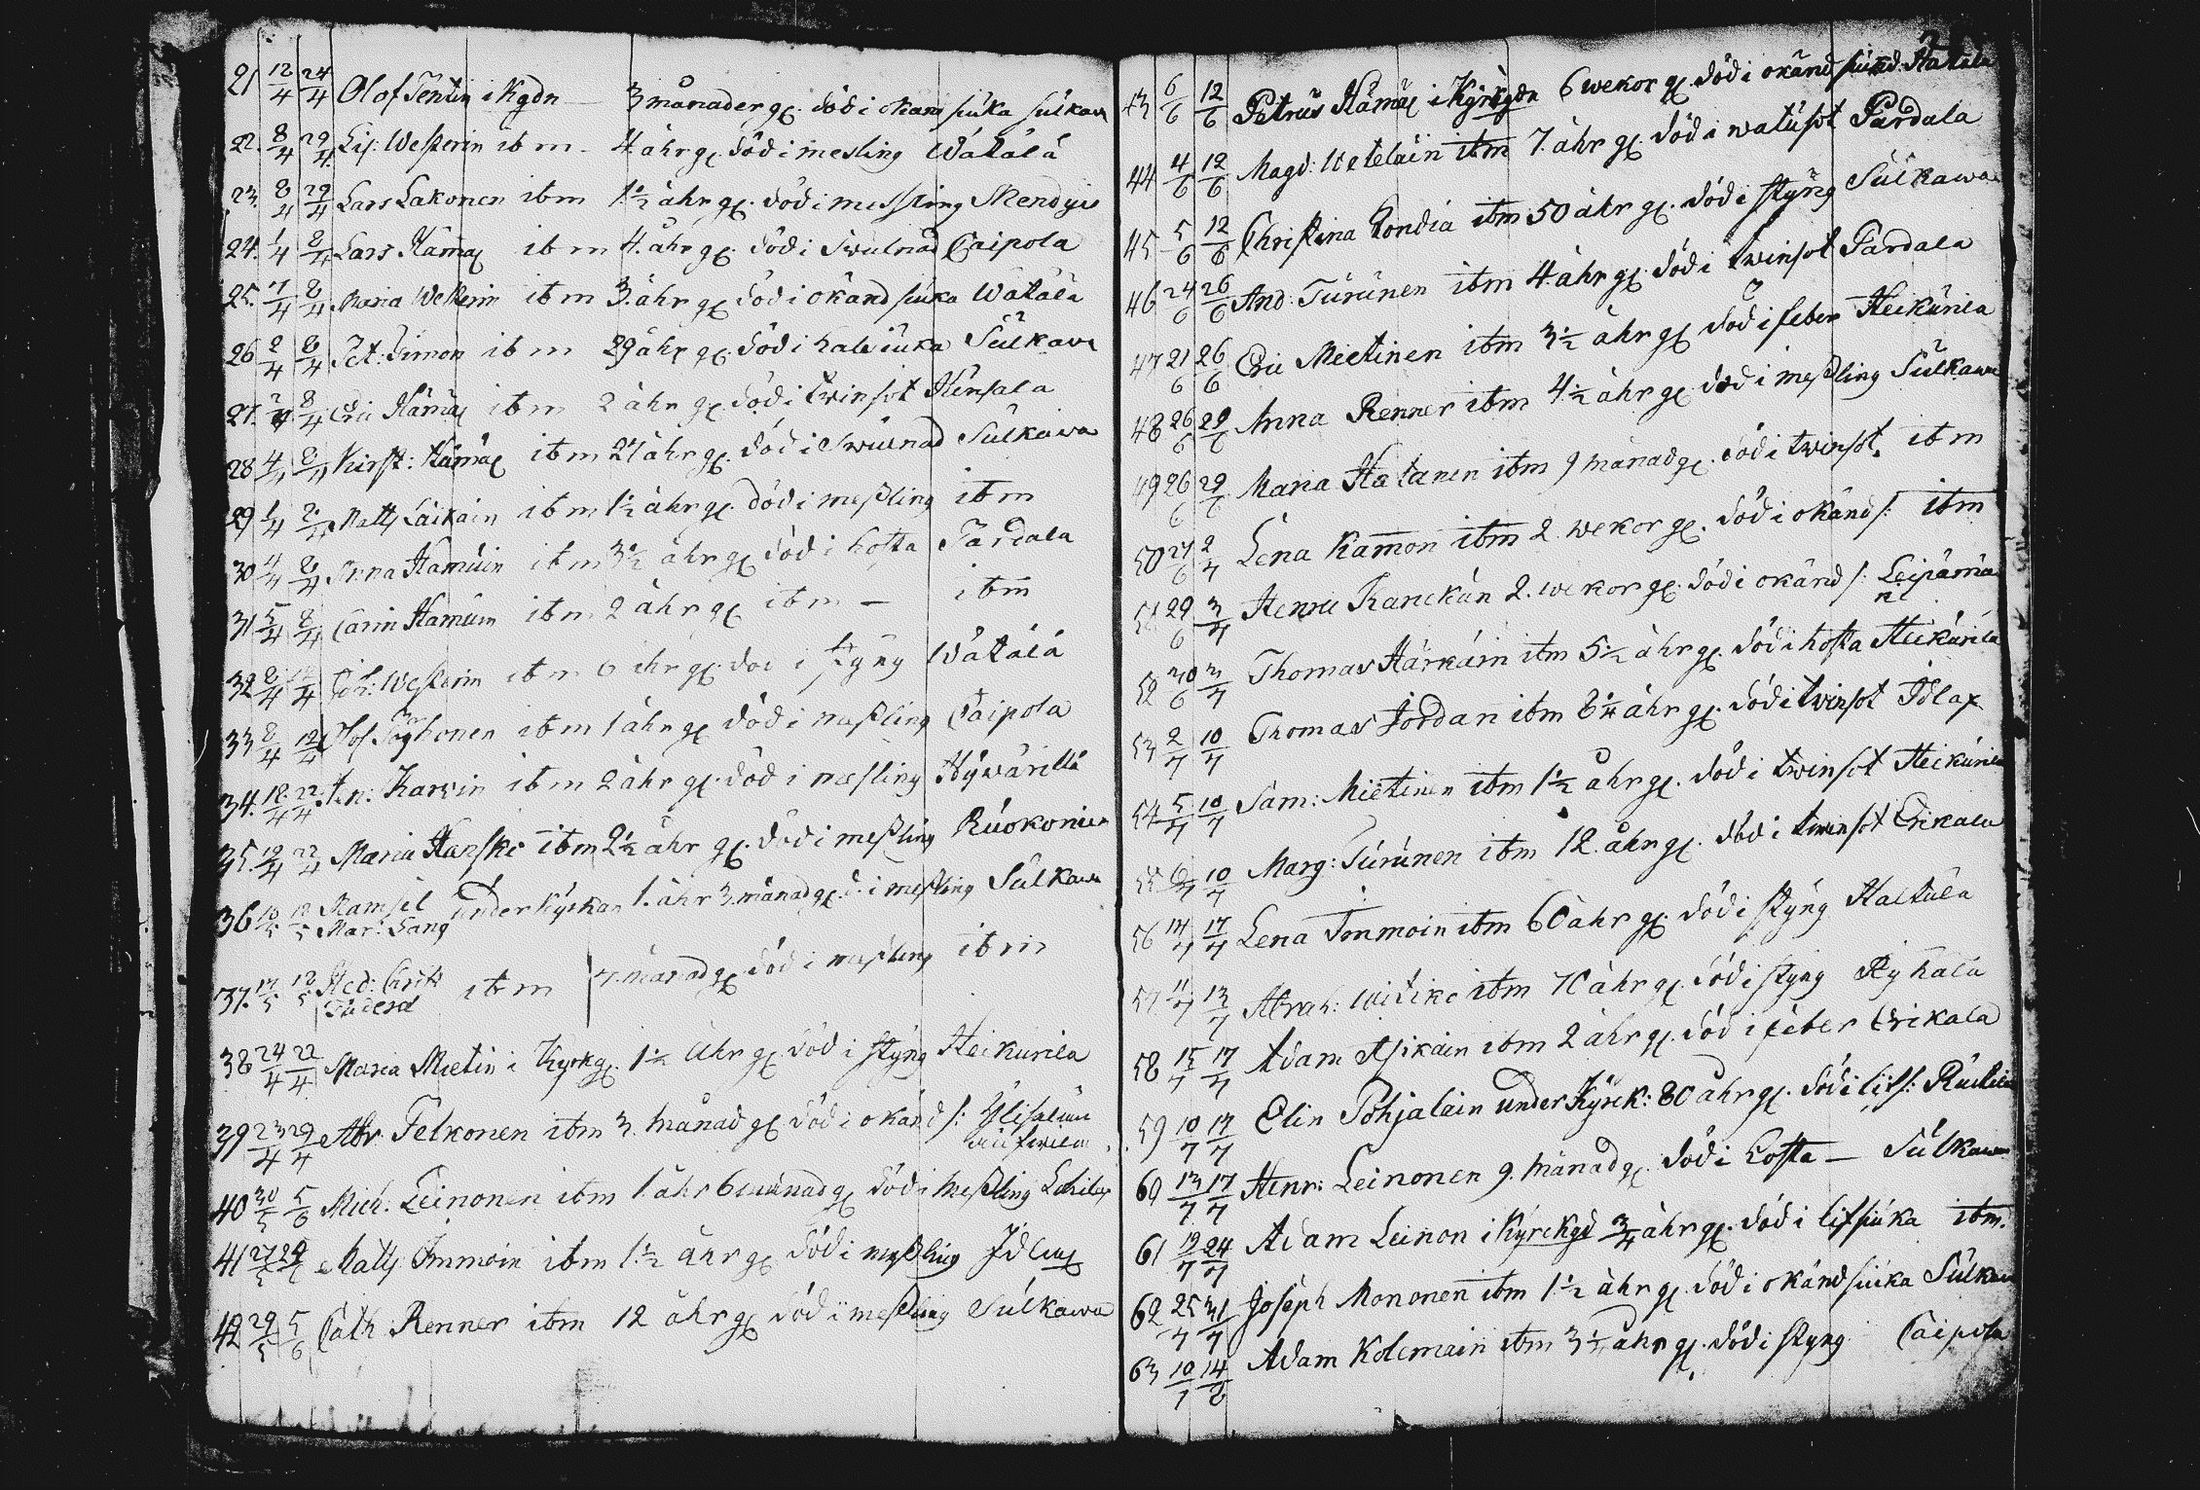 21 12/4 24/4 Olof Tentin i Kgdn — 3 månader gl. död i okänd siuka Sulkava
22. 8/4 29/4 Lis: Westerin ibm 4 åhr gl. död i mesling Wätälä
23. 8/4 29/4 Lars Lakonen ibm 1 1/2 åhr gl. död i messling
24. 1/4 8/4 Lars Hämäl ibm 4. åhr gl. död i Swulnad Caipola
25. 8/4 Maria Westerin ibm 3. åhr gl. död i okänd siuka Wätälä
26 2/4 8/4 Pet: Simon ibm 29 åhr gl. död i halsiuka Sulkava
27. 8/4 Eric Hämäl ibm 2 åhr gl. död i twinsot
28 4/4 8/4 Kirst: Hämäl ibm 27 åhr gl. död i Swulnad Sulkawa
29 1/4 8/4 Matts Laikain ibm 1 1/2 åhr gl. död i messling ibm
30 4/4 8/4 Anna Hamuin ibm 3 1/2 åhr gl. död i hosta Pardala
31 5/4 8/4 Carin Hamuin ibm 2 åhr gl ibm — ibm
32 8/4 12/4 Joh: Westerin ibm 6 åhr gl. död i styng Wätälä
33 8/4 12/4 Olof ibm 1 åhr gl. död i messling Caipola
34. 18/4 22/4 An: Karvin ibm 2 åhr gl. död i messling Hywärilä
35. 19/4 22/4 Maria Hanski ibm 2 1/2 åhr gl. död i messling Ruokonien
36 10/5 12/5 Mamsel Mar: Lang under kyrkan 1. åhr 3. månad gl. d: i messling Sulkawa
37. 17/5 Hed: ibm 7. månad gl. död i messling ibm
38 24/4 22/4 Maria Mietin i Kyrkg. 1 1/2 åhr gl. död i styng Heikurila
39 23/4 29/4 Abr. Telkonen ibm 3. månad gl. död i okänd s:
40 30/5 5/6 Mich: Leinonen ibm 1. åhr 6 månad gl. död i messling
41 27/5 Matts Immoin ibm 1 1/2 åhr gl. död i messling Idlax
42 29/5 5/6 Cath: Renner ibm 12 åhr gl. död i messling Sulkawa
43 6/6 12/6 Petrus Hämäl i Kyrkgdn 6 wekor gl. död i okänd
44 4/6 12/6 Magd: Utetelain ibm 7. åhr gl. död i watusot Pardala
45 5/6 12/6 Christina Kondia ibm 50 åhr gl. död i styng Sulkawa
46 24/6 26/6 And: Turunen ibm 4 åhr gl. död i twinsot Pardala
47 21/6 26/6 Eric Mietinen ibm 3 1/2 åhr gl. död i feber Heikurila
48 26/6 29/6 Anna Renner ibm 4 1/2 åhr gl. död i messling Sulkawa
49 26/6 29/6 Maria Hatanen ibm 9 månad gl. död i twinsot. ibm
50 27/6 2/7 Lena Kamon ibm 2. wekor gl. död i okänd s: ibm
51 29/6 3/7 Henric Kanckan 2. wekor gl. död i okänd s: Leipämä
52 30/6 3/7 Thomas Härkäin ibm 5 1/2 åhr gl. död i hosta Heikurila
53 2/7 10/7 Thomas Jordan ibm 6 1/4 åhr gl. död i twinsot Idlax
54 5/7 10/7 Sam: Mietinen ibm 1 1/2 åhr gl. död i twinsot Heikurila
55 6/7 10/7 Marg: Turunen ibm 12. åhr gl. död i twinsot Erikala
56 14/7 17/7 Lena Immoin ibm 60 åhr gl. död i styng Kaltula
57 11/7 13/7 Abrah: ibm 70 åhr gl. död i styng
58 15/7 17/7 Adam Asikain ibm 2 åhr gl. död i feber Erikala
59 10/7 17/7 Elin Pohjalain under Kyrck: 80 åhr gl. död i lifs:
60 13/7 17/7 Henr: Leinonen 9. månad gl. död i Hosta — Sulkawa
61 19/7 24/7 Adam Leinon i Kyrckgd 3/4 åhr gl. död i lifsiuka ibm.
62 25/7 31/7 Joseph Mononen ibm 1 1/2 åhr gl. död i okänd siuka Sulkawa
63 10/7 14/8 Adam Kolemain ibm 3 1/2 åhr gl. död i styng Caipola